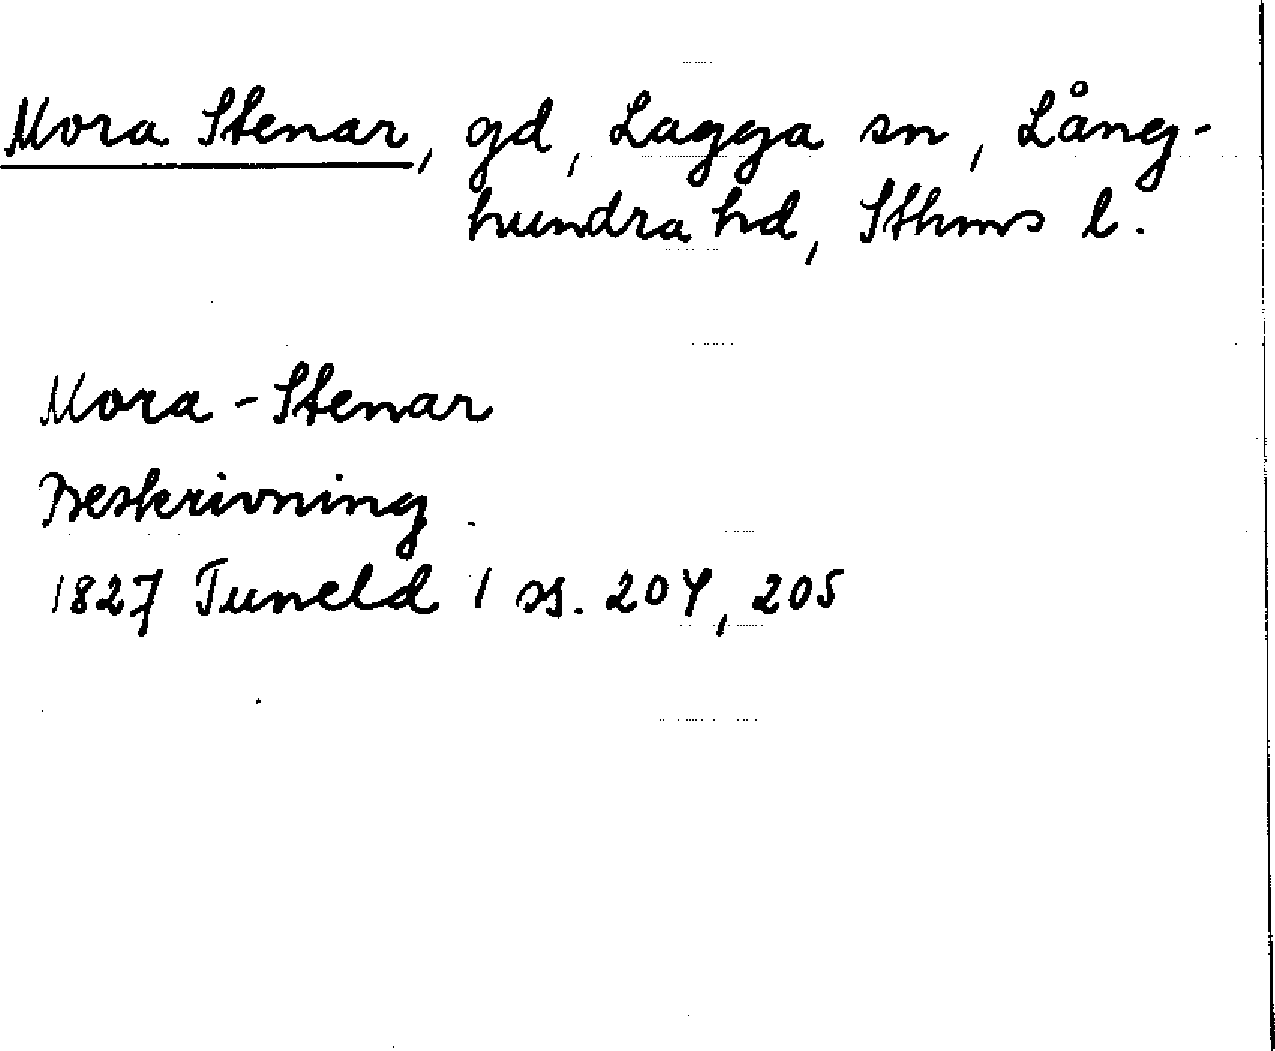 Mora Stenar, gd, Lagga sn, Lång-
hundra hd, Sthms l.
Mora-Stenar
Beskrivning
1827 Tuneld 1 ss. 204, 205